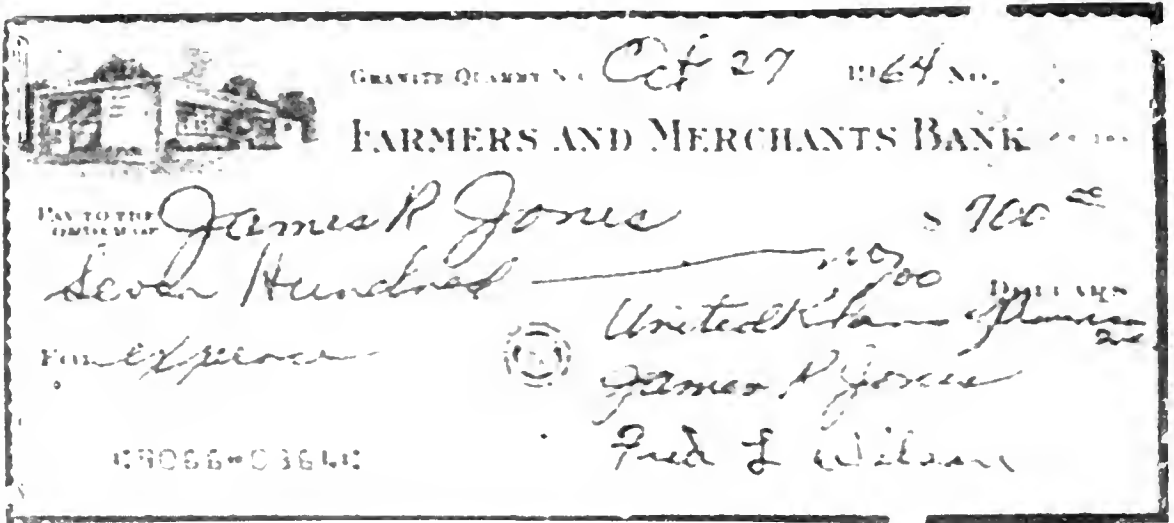 GRANITE QUARRY N.C. Oct 27 1964 No.
FARMERS AND MERCHANTS BANK
PAY TO THE ORDER OF James R Jones $ 700 00
Seven Hundred no/00 DOLLARS
FOR expense United Klans of America Inc
James R Jones
Fred L Wilson